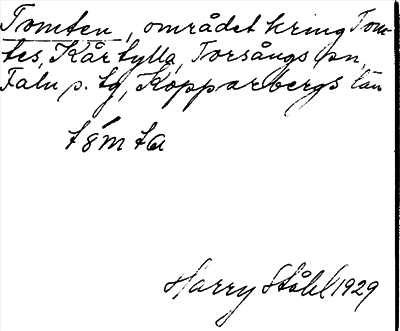 Tomten, området kring Tom-
tes, Kårtylla, Torsångs sn,
Falu s. tg, Kopparbergs län
Harry Ståhl 1929